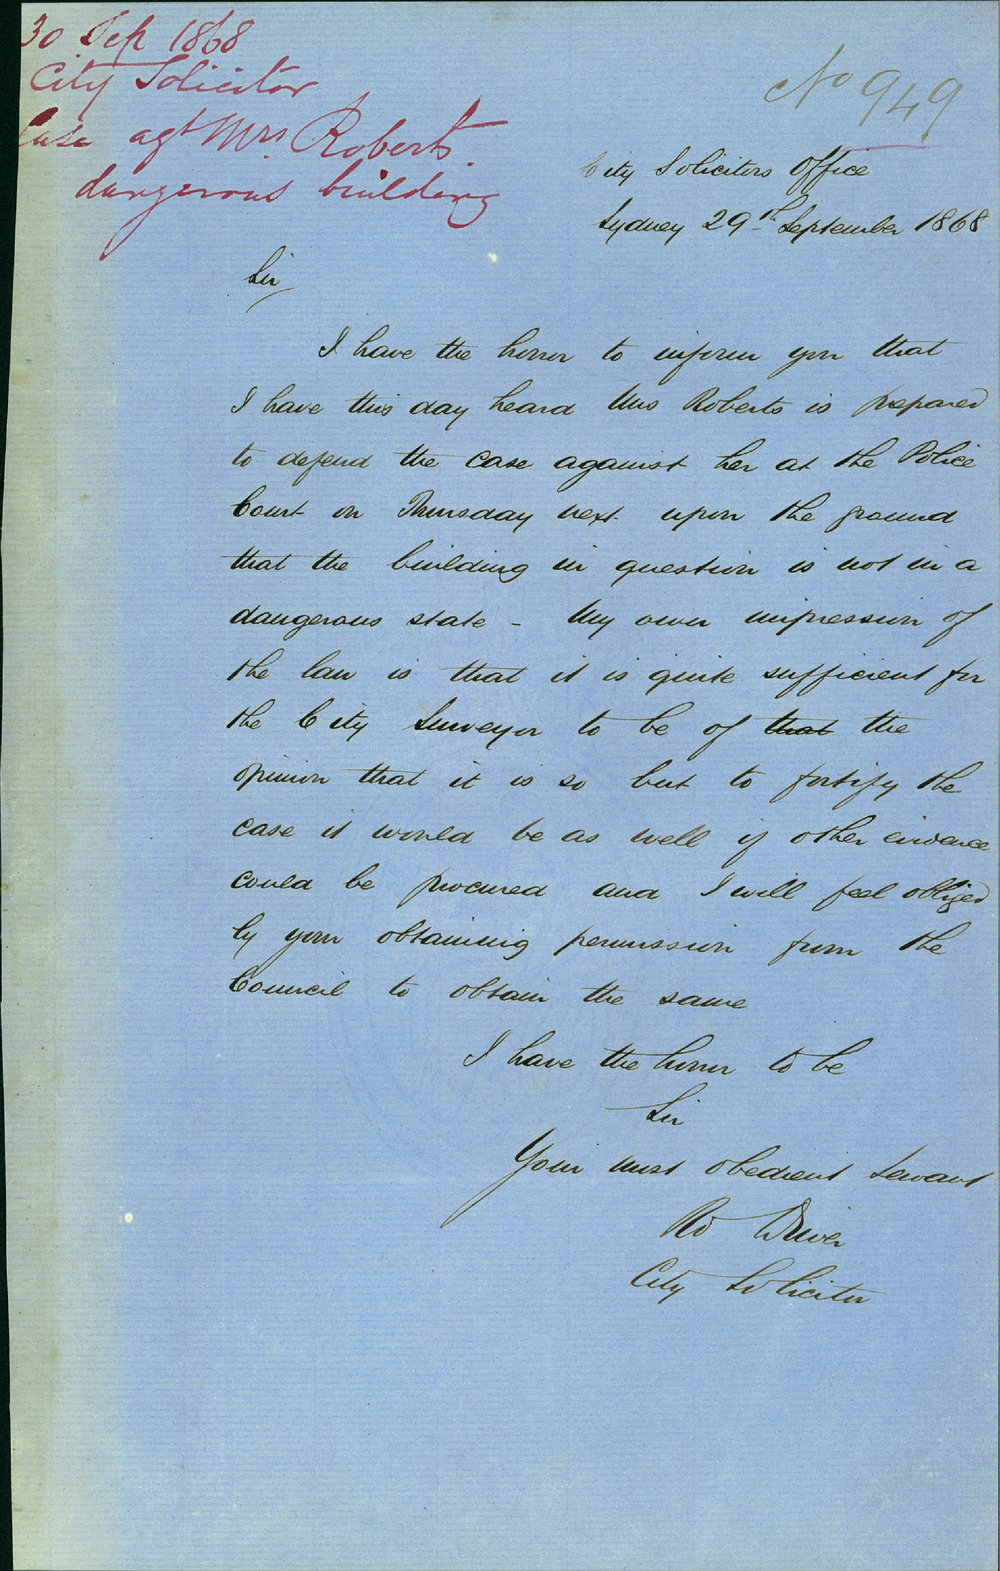 30 Sep 1868
City Solicitor
Case agt Mrs Roberts.
dangerous building
No 949
City Solicitors Office
Sydney 29th September 1868
Sir
I have the honor to inform you that
I have this day heard Mrs Roberts is prepared
to defend the case against her at the Police
Court on Thursday next upon the ground
that the building in question is not in a
dangerous state - My own impression of
the law is that it is quite sufficient for
the City Surveyor to be of that the
opinion that it is so but to fortify the
case it would be as well if other evidence
could be procured and I will feel obliged
by your obtaining permission from the
Council to obtain the same
I have the honor to be
Sir
Your most obedient Servant
Rd Driver
City Solicitor